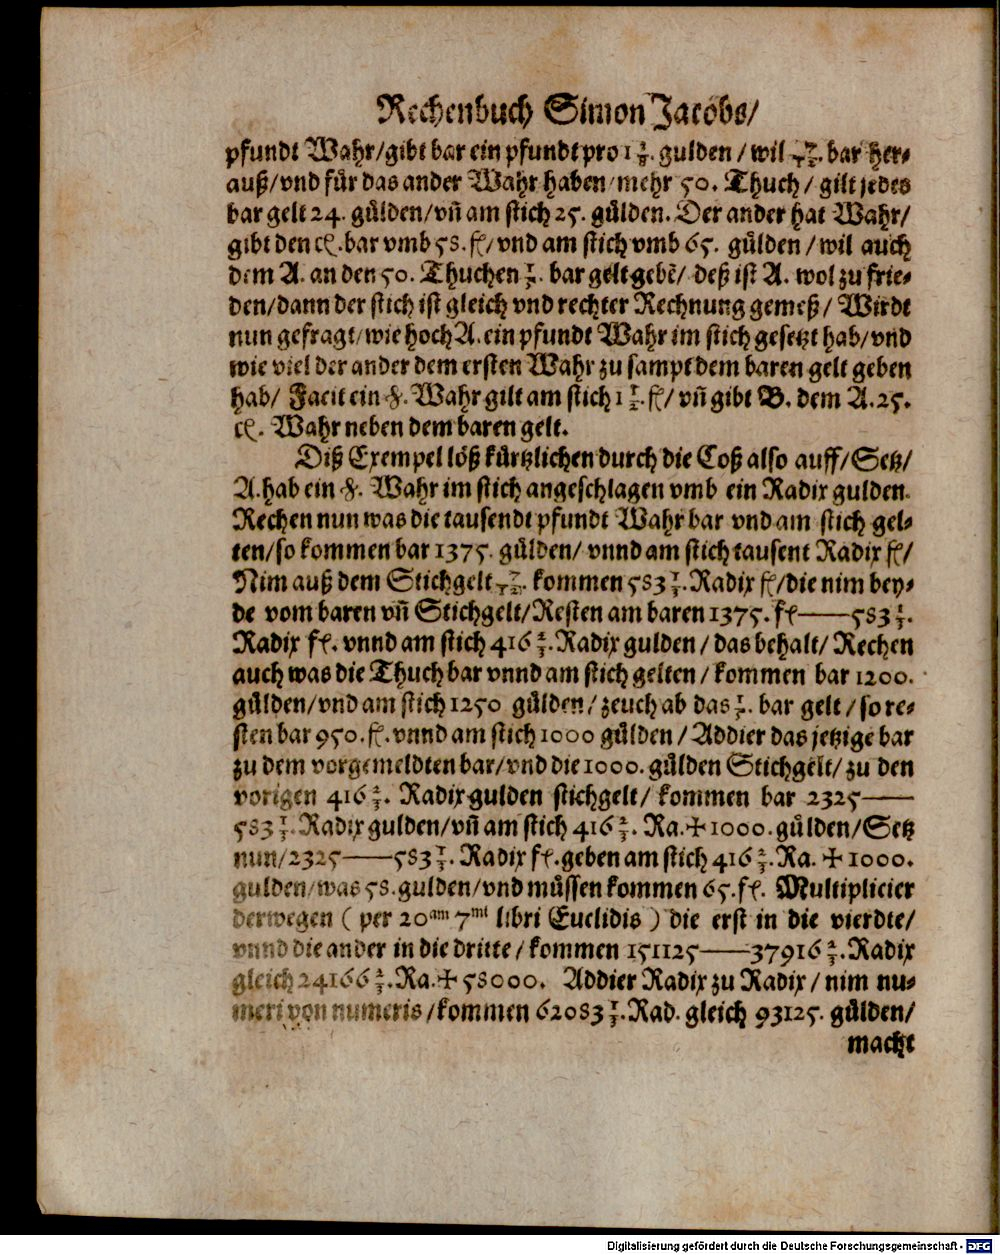 Rechenbuch Simon Jacobs/
pfundt Wahr/gibt bar ein pfundt pro 1 3/8. gulden / wil 7/12. bar her⸗
auß/vnd für das ander Wahr haben/mehr 50. Thuch / gilt jedes
bar gelt 24. gülden/vñ am stich 25. gülden. Der ander hat Wahr/
gibt den cl. bar vmb 58. fl/vnd am stich vmb 65. gülden / wil auch
dem A. an den 50. Thuchen 1/5. bar gelt gebẽ/ deß ist A. wol zu frie⸗
den/dann der stich ist gleich vnd rechter Rechnung gemeß/ Wirdt
nun gefragt/wie hoch A. ein pfundt Wahr im stich gesetzt hab/vnd
wie viel der ander dem ersten Wahr zu sampt dem baren gelt geben
hab/ Facit ein ℔. Wahr gilt am stich 1 1/2. fl/ vñ gibt B. dem A. 25.
cl. Wahr neben dem baren gelt.
Diß Exempel löß kürtzlichen durch die Coß also auff/Setz/
A. hab ein ℔. Wahr im stich angeschlagen vmb ein Radix gulden.
Rechen nun was die tausendt pfundt Wahr bar vnd am stich gel⸗
ten/so kommen bar 1375. gülden/ vnnd am stich tausent Radix fl/
Nim auß dem Stichgelt 7/12. kommen 583 1/3. Radix fl/die nim bey⸗
de vom baren vñ Stichgelt/Resten am baren 1375. fl——583 1/3.
Radix fl. vnnd am stich 416 2/3. Radix gulden / das behalt/ Rechen
auch was die Thuch bar vnnd am stich gelten / kommen bar 1200.
gülden/vnd am stich 1250 gülden/ zeuch ab das 1/5. bar gelt / so re⸗
sten bar 950. fl. vnnd am stich 1000 gülden / Addier das jetzige bar
zu dem vorgemeldten bar/vnd die 1000. gülden Stichgelt/ zu den
vorigen 416 2/3. Radix gulden stichgelt/ kommen bar 2325——
583 1/3. Radix gulden/vñ am stich 416 2/3. Ra.✠1000. gülden/Setz
nun/2325——583 1/3. Radix fl. geben am stich 416 2/3. Ra. ✠ 1000.
gulden/was 58. gulden/vnd müssen kommen 65. fl. Multiplicier
derwegen ( per 20am 7mi libri Euclidis ) die erst in die vierdte/
vnnd die ander in die dritte / kommen 151125——37916 2/3. Radix
gleich 24166 2/3. Ra.✠ 58000. Addier Radix zu Radix / nim nu⸗
meri von numeris/kommen 62083 1/3. Rad. gleich 93125. gülden/
macht
Digitalisierung gefördert durch die Deutsche Forschungsgemeinschaft - DFG